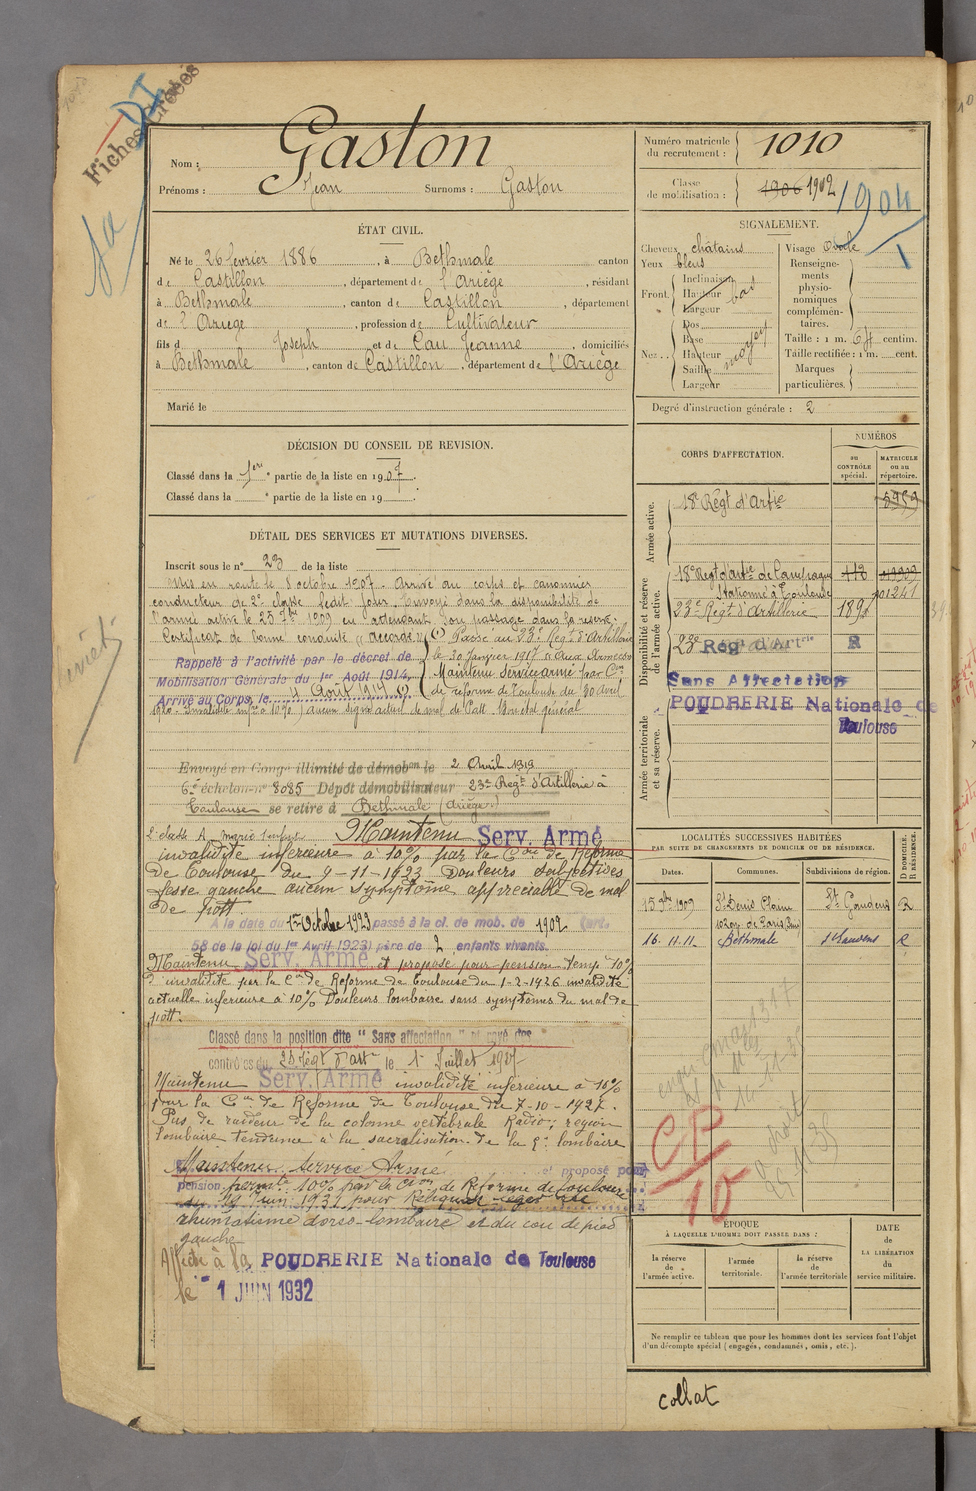 Fiches Créées
DI
Nom : Gaston
Prénoms : Jean Surnoms : Gaston
Numéro matricule du recrutement : 1010
Classe de mobilisation : 1906 1902
1904
ÉTAT CIVIL.
Né le 26 février 1886, à Bethmale canton
de Castillon, département de l'Ariège, résidant
à Bethmale, canton de Castillon, département
de l'Ariège, profession de Cultivateur
fils d Joseph et de Cau Jeanne, domiciliés
à Bethmale, canton de Castillon, département de l'Ariège
Marié le
SIGNALEMENT.
Cheveux châtains
Yeux bleus
Front. Inclinaison
Hauteur bas
Largeur
Nez.. Dos
Base
Hauteur moyen
Saillie
Largeur
Visage Ovale
Renseignements physionomiques complémentaires.
Taille : 1 m. 64 centim.
Taille rectifiée : 1 m. cent.
Marques particulières.
Degré d'instruction générale : 2
DÉCISION DU CONSEIL DE REVISION.
Classé dans la 1ère partie de la liste en 1907.
Classé dans la e partie de la liste en 19 .
DÉTAIL DES SERVICES ET MUTATIONS DIVERSES.
Inscrit sous le n° 23 de la liste
Mis en route le 8 octobre 1907. Arrivé au corps et canonnier
conducteur de 2e classe ledit jour. Envoyé dans la disponibilité de
l'armée active le 25 7bre 1909 en attendant son passage dans la réserve.
Certificat de bonne conduite "accordé" (1) Passé au 23e Régt d'Artillerie
Rappelé à l'activité par le décret de
le 30 Janvier 1917 "Aux Armées"
Mobilisation Générale du 1er Août 1914,
Maintenu Service armé par Con
Arrivé au Corps, le 4 Août 1914 (1)
de réforme de Toulouse du 30 avril
1920. Invalidité infre à 10% aucun signe actuel de mal de Pott. Bon état général
Envoyé en Congé illimité de démobon le 2 Avril 1919
6e échelon n° 8085 Dépôt démobilisateur 23e Régt d'Artillerie à
Toulouse se retire à Bethmale (Ariège)
Maintenu Serv. Armé
invalidité inférieure à 10% par la Con de Réforme
de Toulouse du 9-11-1923 Douleurs
fesse gauche aucun symptôme appréciable de mal
de Pott.
A la date du 1er Octobre 1923 passé à la cl. de mob. de 1902 (art.
58 de la loi du 1er Avril 1923) père de 2 enfants vivants.
Maintenu Serv. Armé et proposé pour pension temp 10%
invalidité par la Con de Réforme de Toulouse du 1-2-1926 invalidité
actuelle inférieure à 10% Douleurs lombaire sans symptômes du mal de
pott.
Classé dans la position dite "Sans affectation" et rayé des
contrôles du 23 Régt d'Art le 1er Juillet 1927
Maintenu Serv. Armé invalidité inférieure à 10%
par la Con de Réforme de Toulouse du 7-10-1927.
Pas de raideur de la colonne vertébrale Radio: région
lombaire tendance à la sacralisation de la 5e lombaire
Maintenu Service Armé et proposé pour
pension permte 10% par la Con de Réforme de Toulouse
du Juin 1931 pour Reliquat léger de
rhumatisme dorso-lombaire et du cou de pied
gauche
Affecté à la POUDRERIE Nationale de Toulouse
le 1 JUIN 1932
CORPS D'AFFECTATION.
NUMÉROS
au CONTRÔLE spécial.
MATRICULE ou au répertoire.
Armée active.
18e Régt d'Artie 8959
Disponibilité et réserve de l'armée active.
18e Regt d'artie de Campagne 118
Stationné à Toulouse 201241
23e Régt d'Artillerie
23e Régt d'Artrie R
Sans Affectation
POUDRERIE Nationale de
Toulouse
Armée territoriale et sa réserve.
LOCALITÉS SUCCESSIVES HABITÉES
PAR SUITE DE CHANGEMENTS DE DOMICILE OU DE RÉSIDENCE.
Dates. Communes. Subdivisions de région. D DOMICILE. R RÉSIDENCE.
15 9bre 1909 St Denis St Gaudens R
16.11.11 Bethmale St Gaudens R
CP
10
ÉPOQUE
À LAQUELLE L'HOMME DOIT PASSER DANS :
la réserve de l'armée active.
l'armée territoriale.
la réserve de l'armée territoriale
DATE de LA LIBÉRATION du service militaire.
Ne remplir ce tableau que pour les hommes dont les services font l'objet
d'un décompte spécial (engagés, condamnés, omis, etc.).
collat